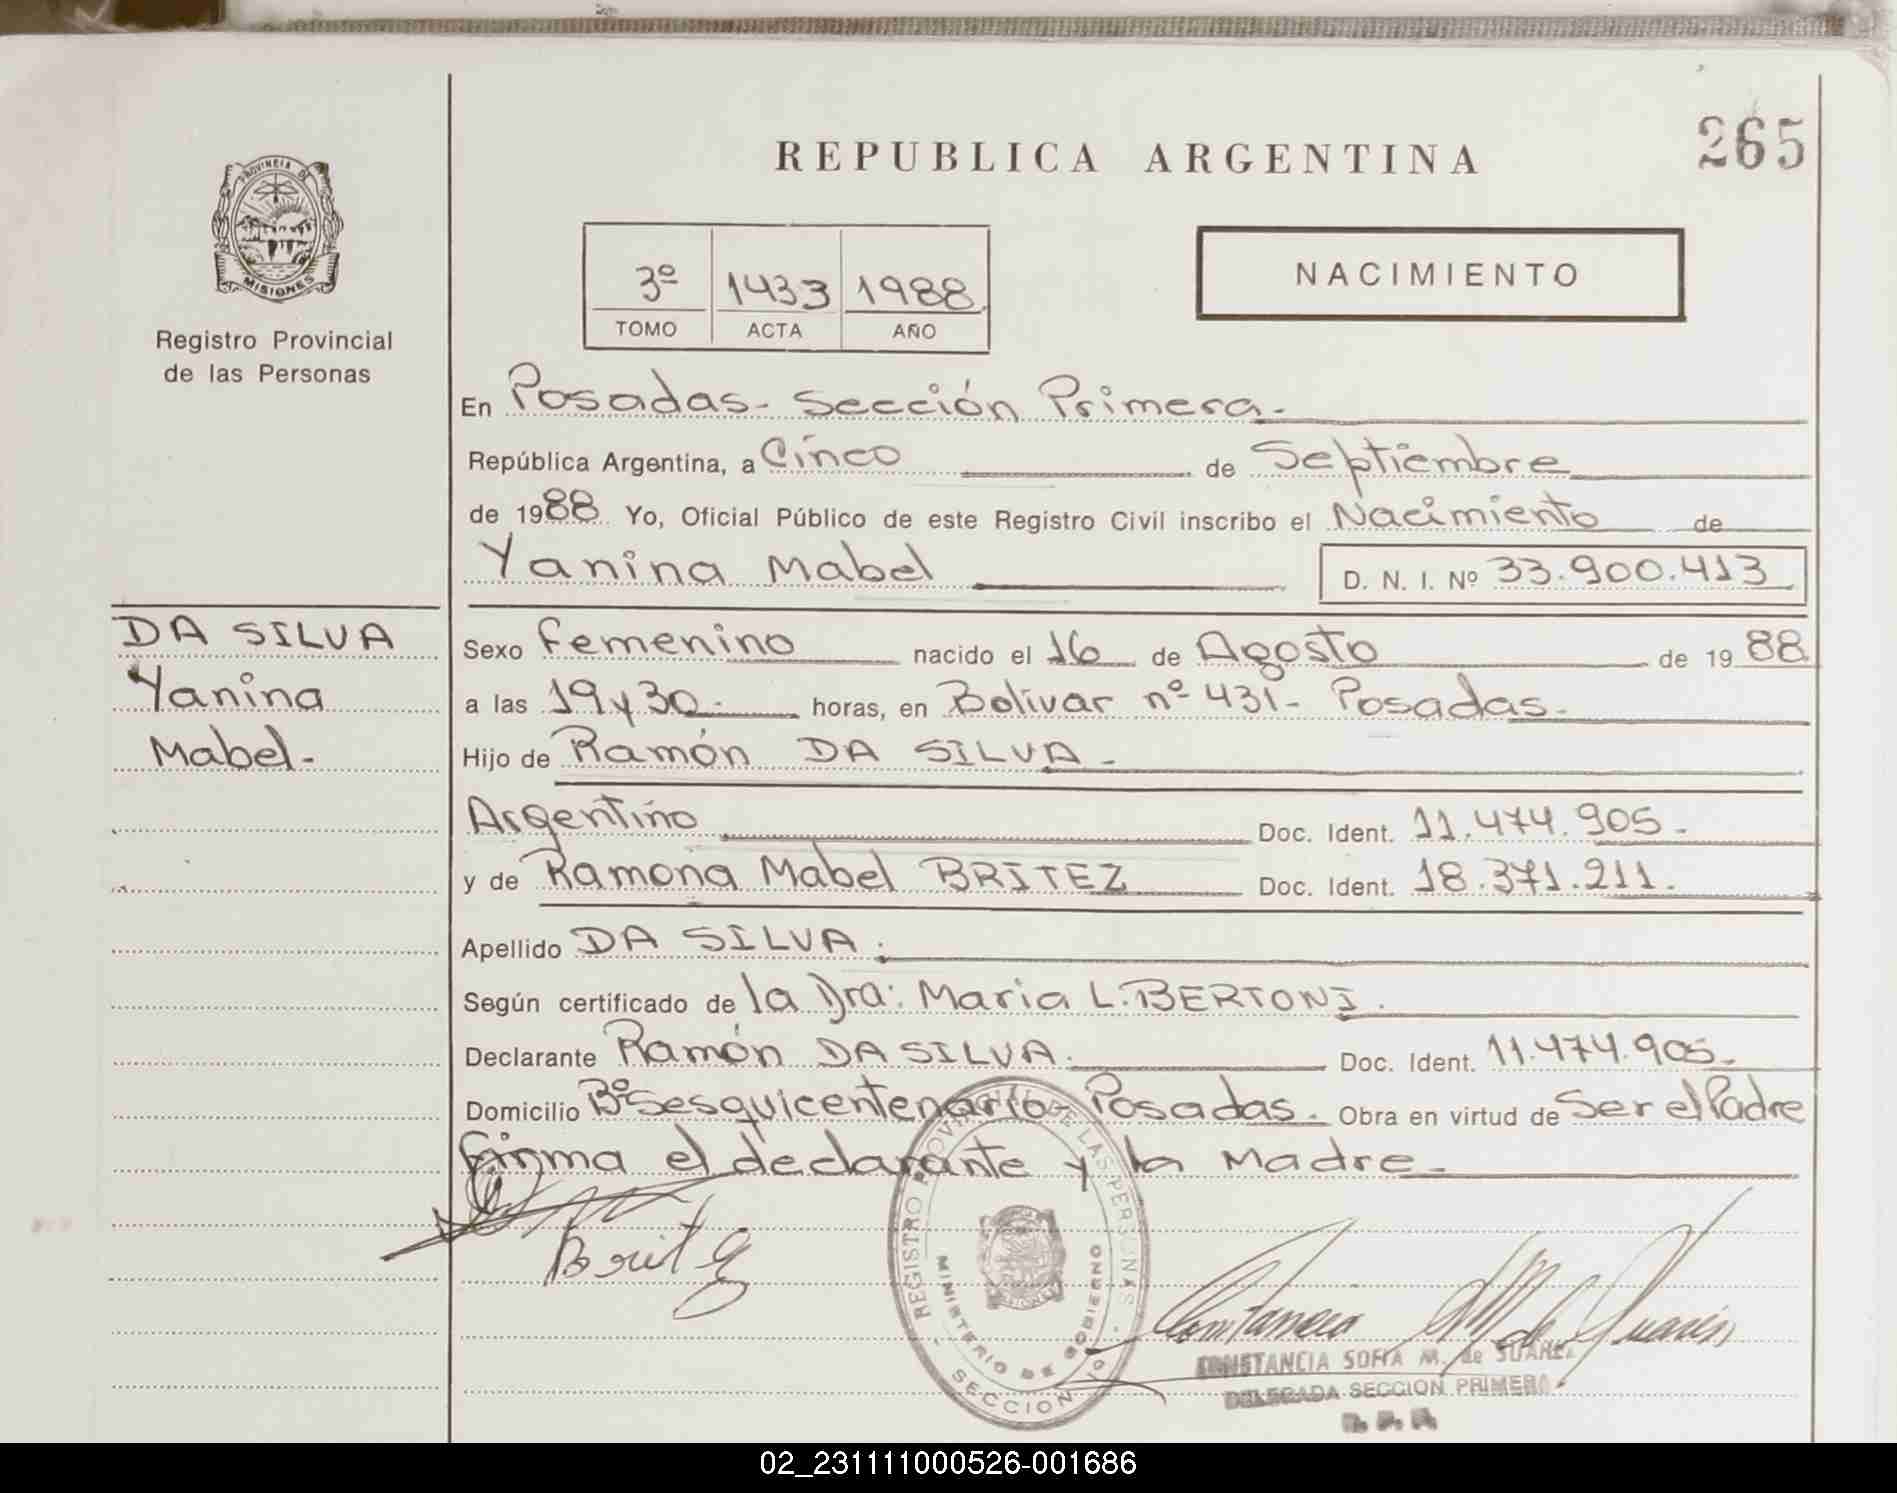 265
REPUBLICA ARGENTINA
PROVINCIA DE
MISIONES
Registro Provincial
de las Personas
3º 1433 1988
TOMO ACTA AÑO
NACIMIENTO
En Posadas- Sección Primera-
República Argentina, a Cinco de Septiembre
de 1988 Yo, Oficial Público de este Registro Civil inscribo el Nacimiento de
Yanina Mabel D. N. I. Nº 33.900.413
DA SILVA
Yanina
Mabel-
Sexo Femenino nacido el 16 de Agosto de 1988
a las 19 y 30- horas, en Bolivar nº 431- Posadas-
Hijo de Ramón DA SILVA-
Argentino Doc. Ident. 11.474.905-
y de Ramona Mabel BRITEZ Doc. Ident. 18.371.211.
Apellido DA SILVA.
Según certificado de la Dra: Maria L. BERTONI.
Declarante Ramón DA SILVA. Doc. Ident. 11.474.905-
Domicilio Bº Sesquicentenario- Posadas- Obra en virtud de Ser el Padre
Firma el declarante y la Madre-
Britez
REGISTRO PROVINCIAL DE LAS PERSONAS
MINISTERIO DE GOBIERNO
SECCION 1º
CONSTANCIA SOFIA M. de SUAREZ
DELEGADA SECCION PRIMERA
R. P. P.
02_231111000526-001686